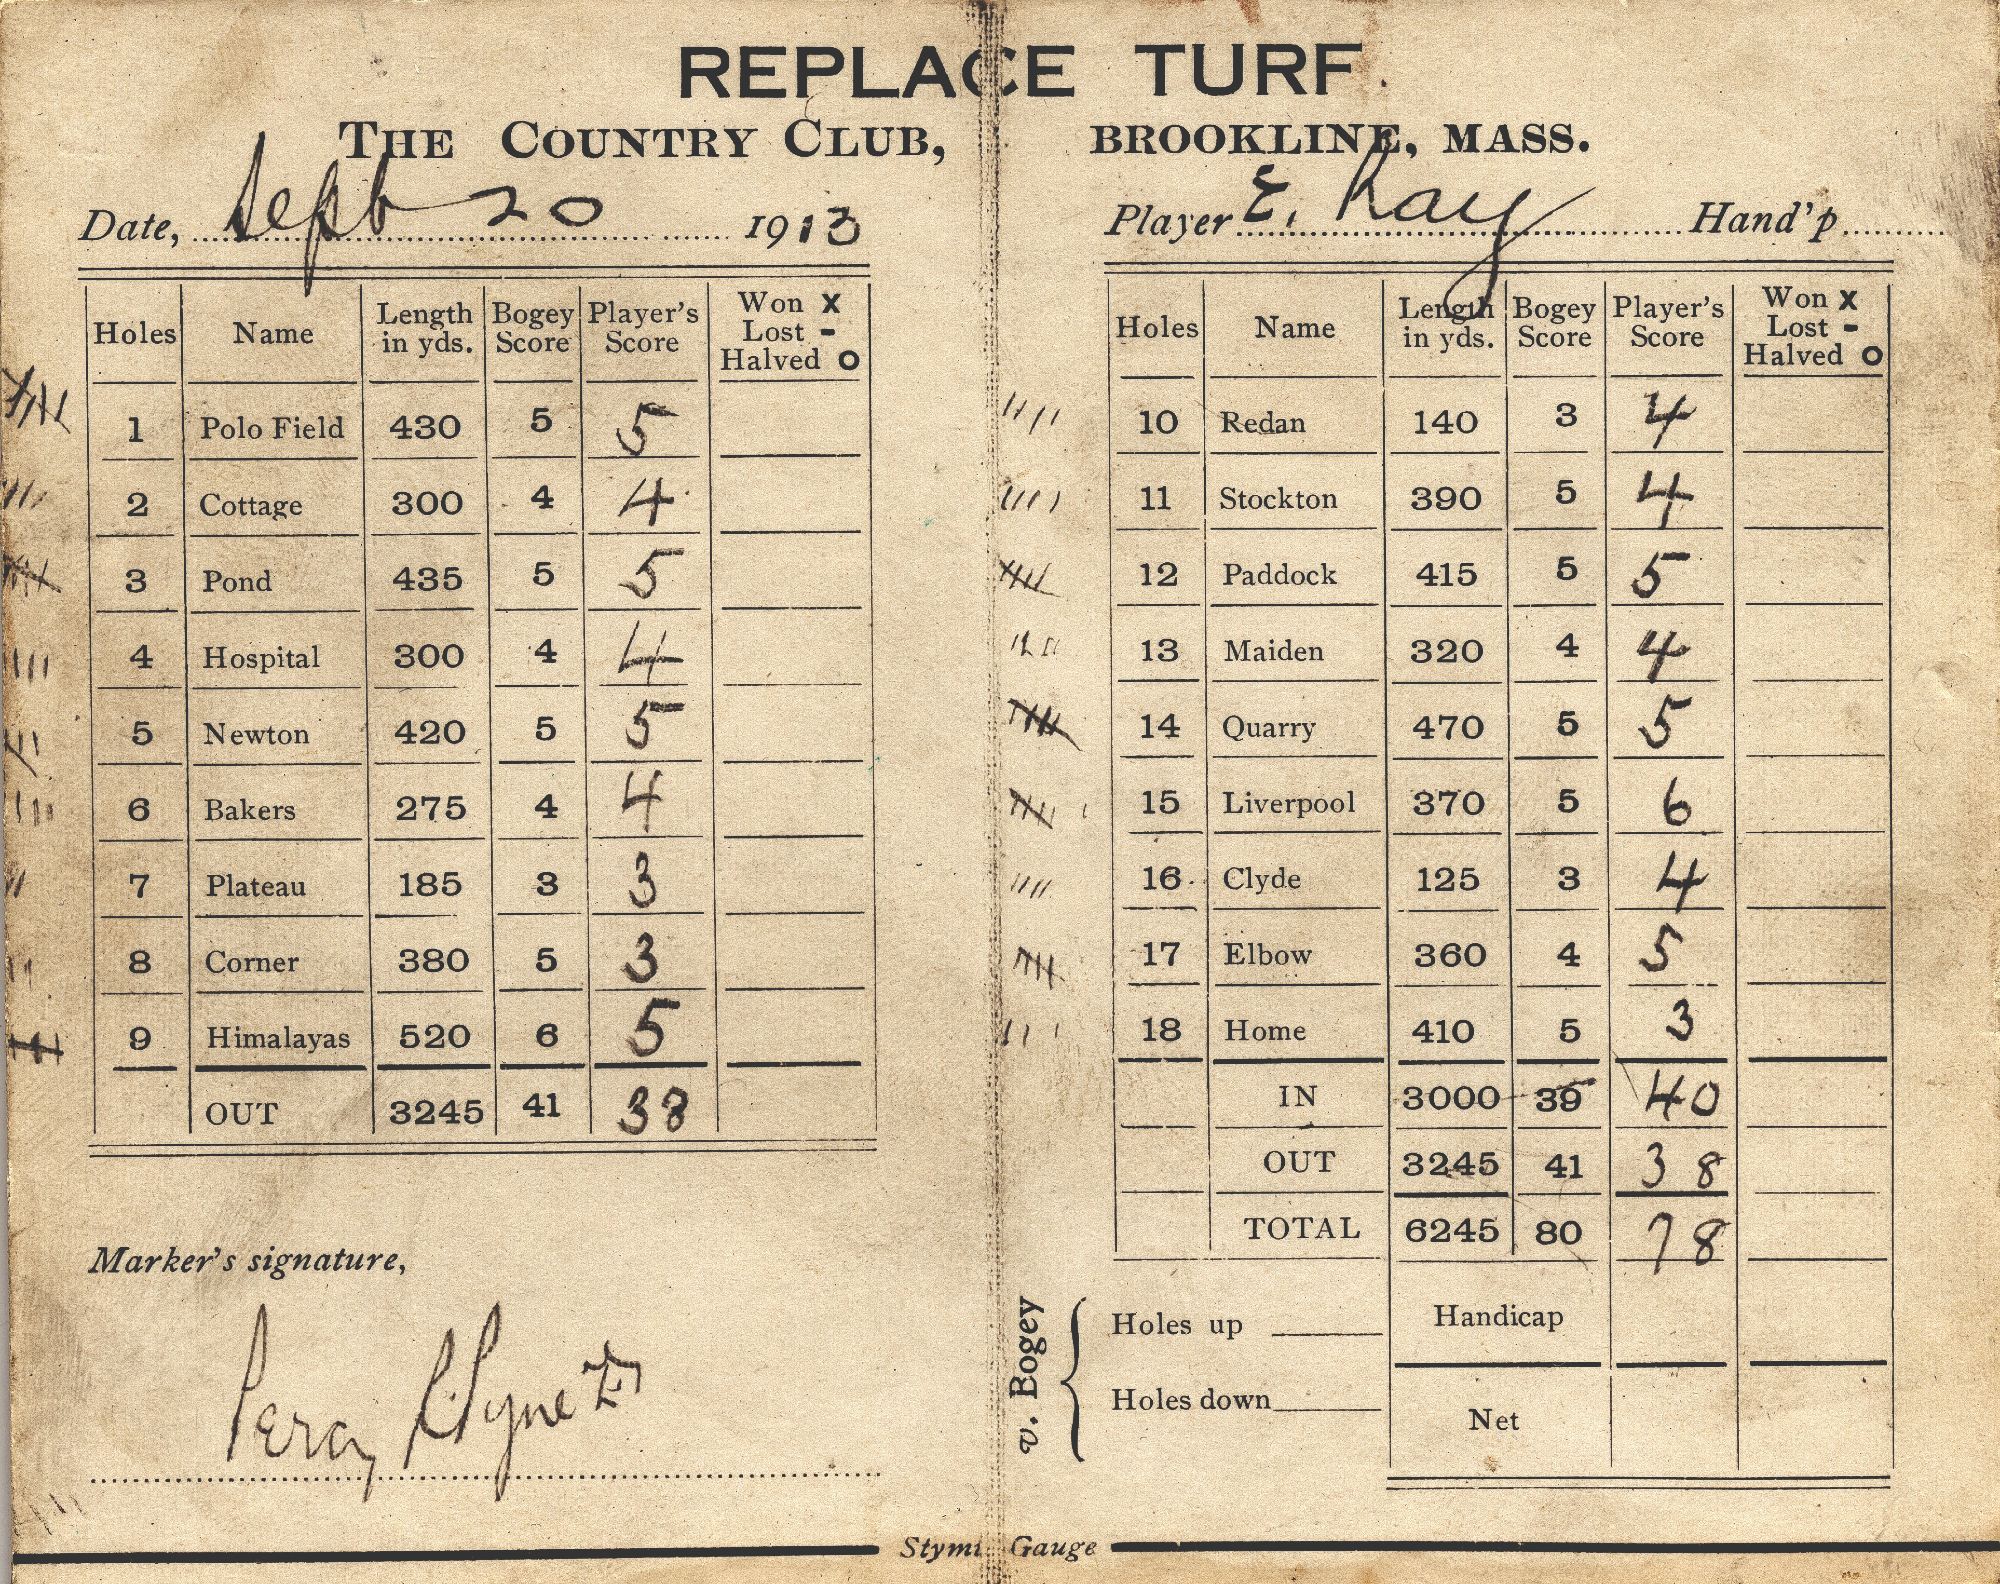 REPLACE TURF
THE COUNTRY CLUB, BROOKLINE, MASS.
Date, Sept 20 1913 Player E. Ray Hand'p
Holes Name Length in yds. Bogey Score Player's Score Won X Lost - Halved O
1 Polo Field 430 5 5
2 Cottage 300 4 4
3 Pond 435 5 5
4 Hospital 300 4 4
5 Newton 420 5 5
6 Bakers 275 4 4
7 Plateau 185 3 3
8 Corner 380 5 3
9 Himalayas 520 6 5
OUT 3245 41 38
Marker's signature,
Percy R. Pyne 2d
Holes Name Length in yds. Bogey Score Player's Score Won X Lost - Halved O
10 Redan 140 3 4
11 Stockton 390 5 4
12 Paddock 415 5 5
13 Maiden 320 4 4
14 Quarry 470 5 5
15 Liverpool 370 5 6
16 Clyde 125 3 4
17 Elbow 360 4 5
18 Home 410 5 3
IN 3000 39 40
OUT 3245 41 38
TOTAL 6245 80 78
v. Bogey
Holes up
Holes down
Handicap
Net
Stymie Gauge